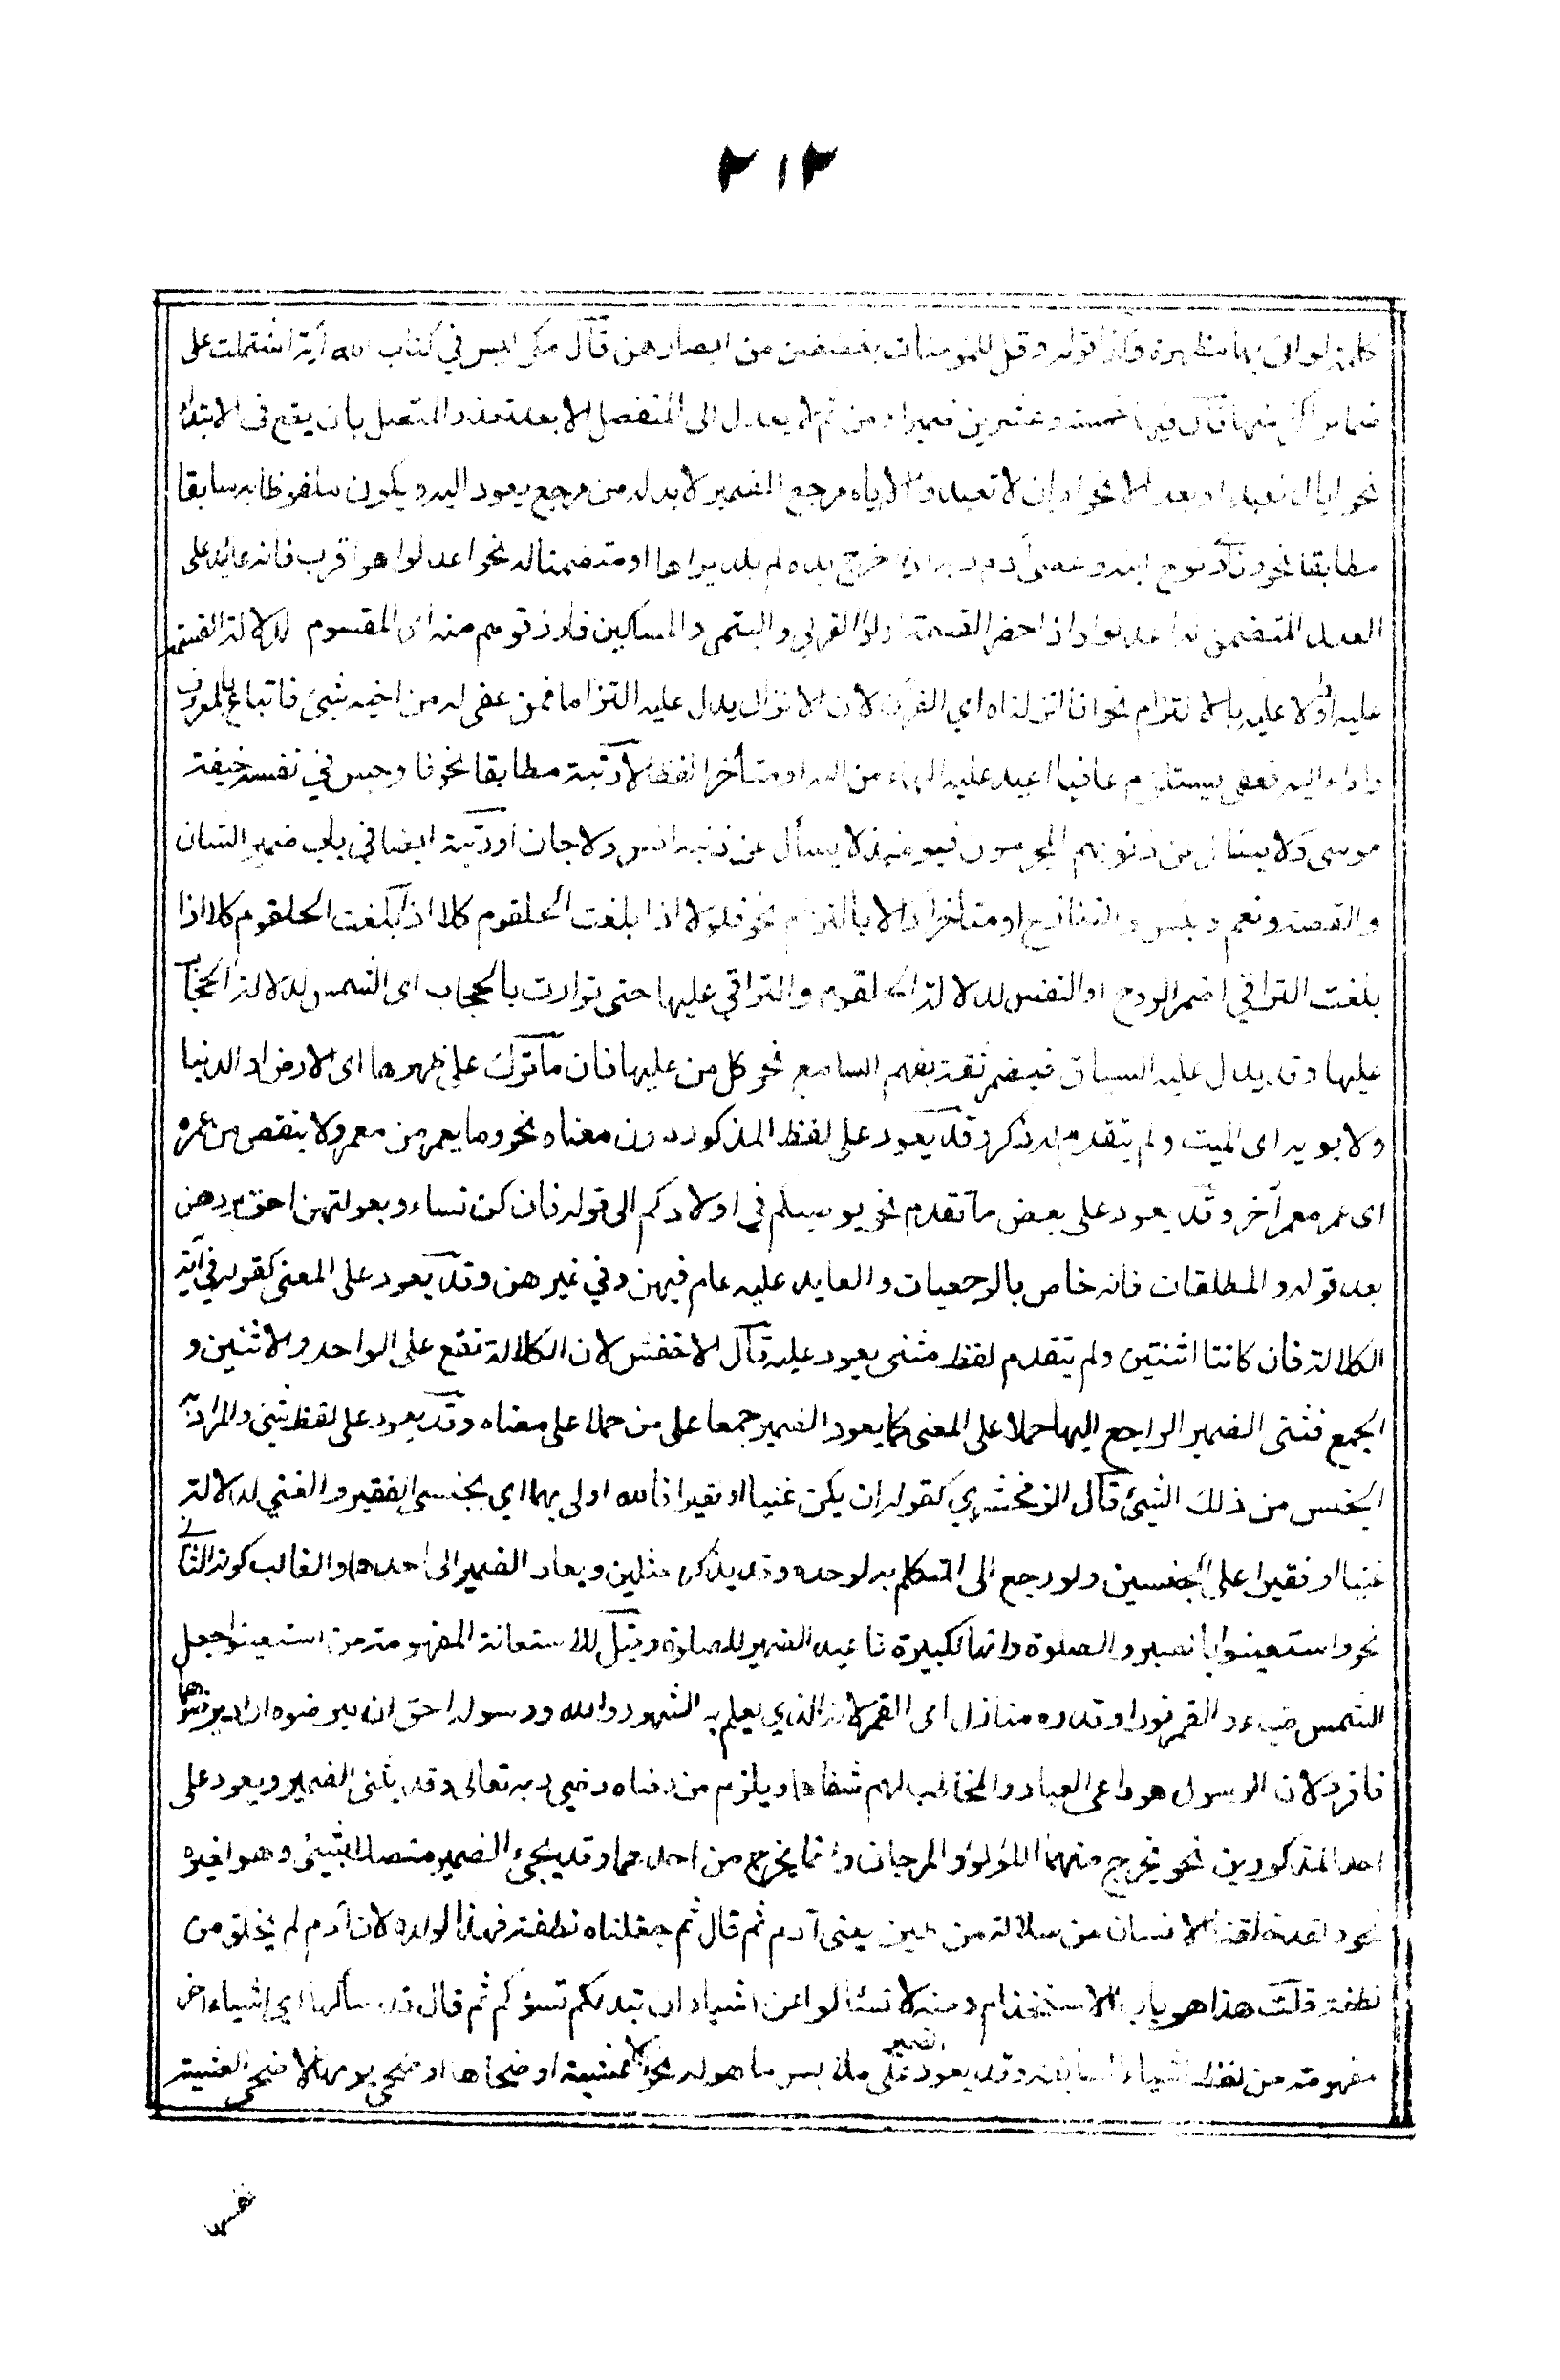 ٢١٢
كلمة لو اتى بها مظهرة وكذا قوله وقل للمؤمنات يغضضن من ابصارهن قال مكى ليس في كتاب الله آية اشتملت على
ضمائر اكثر منها فان فيها خمسة وعشرين ضميرا ومن ثم لا يعدل الى المنفصل الا بعد تعذر المتصل بان يقع في الابتداء
نحو اياك نعبد او بعد الا نحو امر ان لا تعبدوا الا اياه مرجع الضمير لا بد له من مرجع يعود اليه ويكون ملفوظا به سابقا
مطابقا نحو ونادى نوح ابنه وعصى آدم ربه اذا اخرج يده لم يكد يراها او متضمنا له نحو اعدلوا هو اقرب فانه عائد على
العدل المتضمن له اعدلوا واذا حضر القسمة اولوا القربى واليتمى والمساكين فارزقوهم منه اى المقسوم لدلالة القسمة
عليه او دالا عليه بالالتزام نحو انا انزلناه اي القرآن لان الانزال يدل عليه التزاما فمن عفى له من اخيه شيئ فاتباع بالمعروف
واداء اليه فعفى يستلزم عافيا اعيد عليه الهاء من اليه او متأخرا لفظا لا رتبة مطابقا نحو فاوجس في نفسه خيفة
موسى ولا يسئل عن ذنوبهم المجرمون فيومئذ لا يسأل عن ذنبه انس ولا جان او رتبة ايضا في باب ضمير الشان
والقصة ونعم وبئس والتنازع او متأخرا دالا بالالتزام نحو فلولا اذا بلغت الحلقوم كلا اذا بلغت الحلقوم كلا اذا
بلغت التراقي اضمر الروح او النفس لدلالة الحلقوم والتراقي عليها حتى توارت بالحجاب اى الشمس لدلالة الحجاب
عليها وقد يدل عليه السياق فيضمر ثقة بفهم السامع نحو كل من عليها فان ما ترك على ظهرها اى الارض او الدنيا
ولابويه اى الميت ولم يتقدم له ذكر وقد يعود على لفظ المذكور دون معناه نحو وما يعمر من معمر ولا ينقص من عمره
اى عمر معمر آخر وقد يعود على بعض ما تقدم نحو يوصيكم في اولادكم الى قوله فان كن نساء وبعولتهن احق بردهن
بعد قوله والمطلقات فانه خاص بالرجعيات والعايد عليه عام فيهن وفي غيرهن وقد يعود على المعنى كقوله في آية
الكلالة فان كانتا اثنتين ولم يتقدم لفظ مثنى يعود عليه قال الاخفش لان الكلالة تقع على الواحد والاثنين و
الجمع فثنى الضمير الراجع اليها حملا على المعنى كما يعود الضمير جمعا على من حملا على معناه وقد يعود على لفظ شئ والمراد به
الجنس من ذلك الشيئ قال الزمخشري كقوله ان يكن غنيا او فقيرا فالله اولى بهما اي بجنسى الفقير والغني لدلالة
غنيا او فقيرا على الجنسين ولو رجع الى المتكلم به لوحده وقد يذكر مثلين ويعاد الضمير الى احدهما والغالب كونه الثانى
نحو واستعينوا بالصبر والصلوة وانها لكبيرة فاعيد الضمير للصلوة وقيل للاستعانة المفهومة من استعينوا جعل
الشمس ضياء والقمر نورا وقدره منازل اى القمر لانه الذي يعلم به الشهور والله ورسوله احق ان يرضوه اراد يرضوهما
فافرد لان الرسول هو داعى العباد والمخاطب لهم شفاها ويلزم من رضاه رضى ربه تعالى وقد يثنى الضمير ويعود على
احد المذكورين نحو يخرج منهما اللؤلؤ والمرجان وانما يخرج من احدهما وقد يجيء الضمير متصلا بشيئ وهو لغيره
نحو ولقد خلقنا الانسان من سلالة من طين يعنى آدم ثم قال ثم جعلناه نطفة فهذا لولده لان آدم لم يخلق من
نطفة قلت هذا هو باب الاستخدام ومنه لا تسئالوا عن اشياء ان تبد لكم تسؤكم ثم قال قد سألها اي اشياء اخر
مفهومة من لفظ اشياء السابقة وقد يعود الضمير على ملابس ما هو له نحو الا عشية او ضحاها او ضحى يومها لا ضحى العشية
نفسها